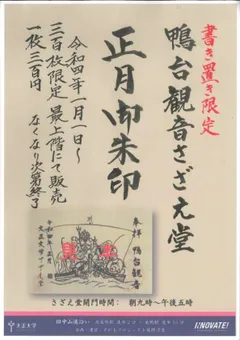 書き置き限定
鴨台観音さざえ堂
正月御朱印
令和四年一月一日〜
三百枚限定 最上階にて販売
一枚三百円
なくなり次第終了
参拝 鴨台観音
令和四年 正月
さざえ堂開門時間: 朝九時〜午後五時
大正大学
I, NOVATE!